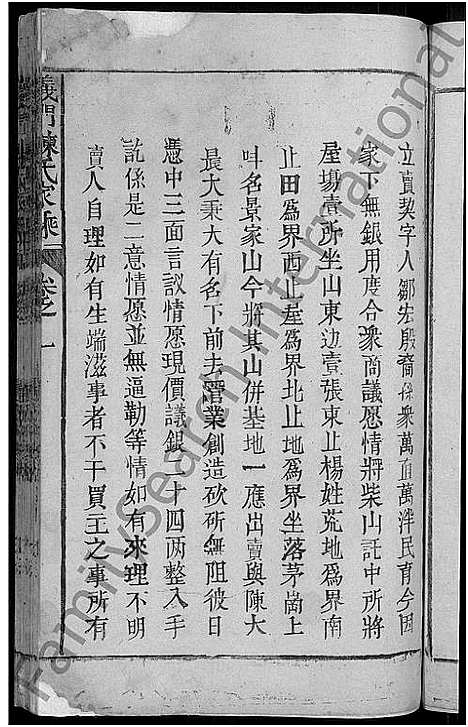 立賣契字人鄒宏殷裔孫眾萬直萬泮民育今因
家下無銀用度合衆商議愿情將柴山託中所將
屋塲壹所坐山東边壹張東止楊姓荒地爲界南
止田爲界西止屋爲界北止地爲界坐落茅崗上
呌名景家山今將其山併基地一應出賣與陳大
長大秉大有名下前去管業創造砍斫無阻彼日
憑中三面言議情愿現價議銀二十四两整入手
訖係是二意情愿並無逼勒等情如有來理不明
賣人自理如有生端滋事者不干買主之事所有
義門陳氏家乘
卷之一
FamilySearch International